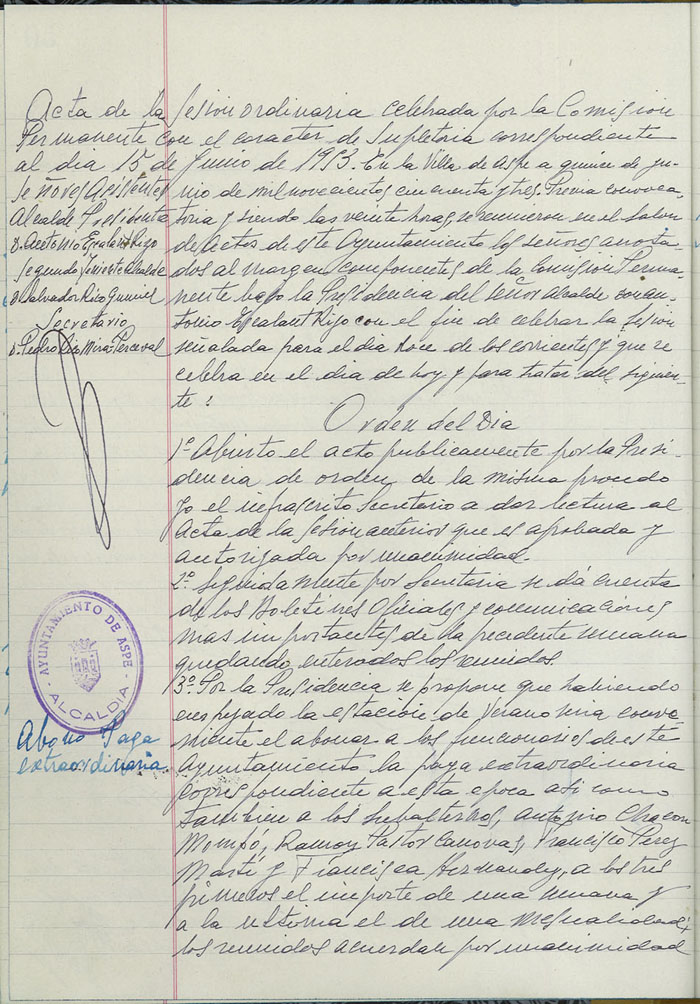 Acta de la Sesion ordinaria celebrada por la Comision
Permanente con el caracter de Supletoria correspondiente
al dia 15 de Junio de 1953. En la Villa de Aspe a quince de ju-
nio de mil novecientos cincuenta y tres. Previa convoca-
toria y siendo las veinte horas, se reunieron en el Salon
de actos de este Ayuntamiento los señores anota-
dos al margen componentes de la Comision Perma-
nente bajo la Presidencia del Señor Alcalde Don An-
tonio Escalant Rizo con el fin de celebrar la sesion
señalada para el dia doce de los corrientes y que se
celebra en el dia de hoy y para tratar del siguien-
te:
Señores Asistentes
Alcalde Presidente
D. Antonio Escalant Rizo
Segundo Teniente Alcalde
D. Salvador Rico
Secretario
D. Pedro Mira-Perceval
Orden del Dia
1º Abierto el acto publicamente por la Presi-
dencia de orden de la misma procedo
yo el infrascrito Secretario a dar lectura al
Acta de la sesion anterior que es aprobada y
autorizada por unanimidad.
2º Seguidamente por Secretaria se dá cuenta
de los Boletines Oficiales y comunicaciones
mas importantes de la precedente semana
quedando enterados los reunidos.
3º Por la Presidencia se propone que habiendo
empezado la estacion de Verano seria conve-
niente el abonar a los funcionarios de este
Ayuntamiento la paga extraordinaria
correspondiente a esta epoca asi como
tambien a los subalternos, Antonio Chacon
Mompó, Ramon Pastor Canovas, Francisco Perez
Martí y Francisca Hernandez, a los tres
primeros el importe de una semana y
a la ultima el de una mensualidad;
los reunidos acuerdan por unanimidad
AYUNTAMIENTO DE ASPE
ALCALDIA
Abono Paga
extraordinaria